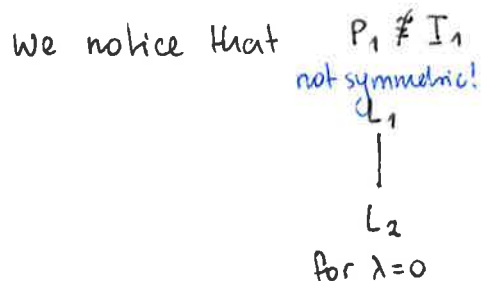 We notice that P₁ ≇ I₁
not symmetric!
L₁
|
L₂
for λ=0